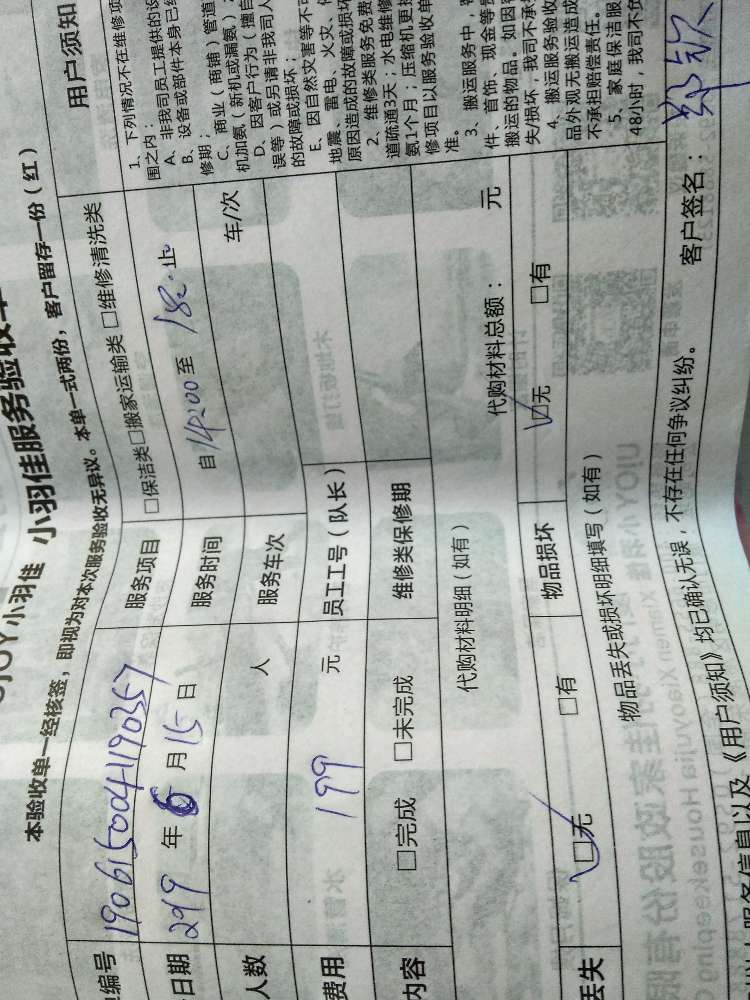 小羽佳 小羽佳服务验收单
本验收单一经核签，即视为对本次服务验收无异议。本单一式两份，客户留存一份（红）
编号 1906150041190357
服务项目 □保洁类□搬家运输类 □维修清洗类
日期 2019 年 6 月 15 日
服务时间 自 14:00 至
人数 人
服务车次 车/次
费用 199 元
员工工号（队长）
内容 □完成 □未完成
维修类保修期
代购材料明细（如有）
代购材料总额： 元
丢失 □无 □有
物品损坏 □无 □有
物品丢失或损坏明细填写（如有）
服务信息以及《用户须知》均已确认无误，不存在任何争议纠纷。
客户签名：
用户须知
1、下列情况不在维修项
围之内：
A、非我司员工提供的设
B、设备或部件本身已经
修期；
C、商业（商铺）管道
机加氨（新机或漏氨）
D、因客户行为（擅自
误等）或另请非我司人
的故障或损坏；
E、因自然灾害等不可
地震、雷电、火灾、
原因造成的故障或损坏
2、维修类服务免费
道疏通3天；水电维修
氨1个月；压缩机更换
修项目以服务验收单
准。
3、搬运服务中，
件、首饰、现金等贵
搬运的物品。如因
失/损坏，我司不承
4、搬运服务验收
品外观无搬运造成
不承担赔偿责任。
5、家庭保洁服
48小时，我司不负